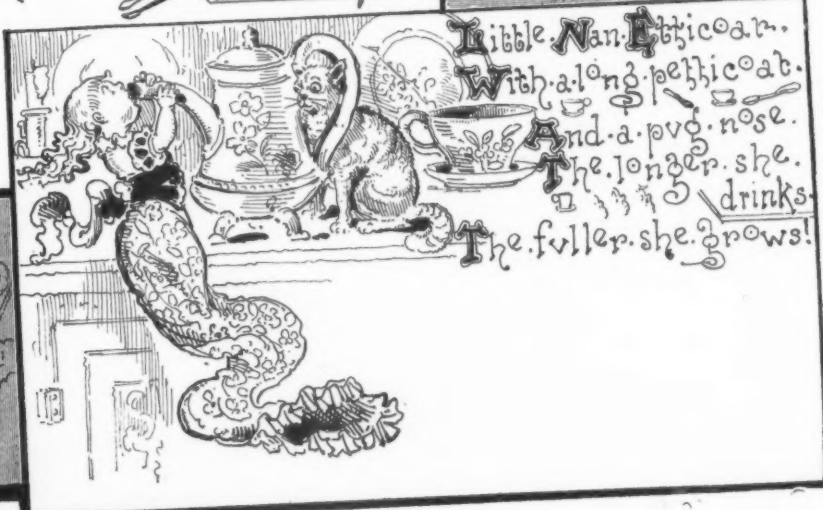 Little·Nan·Etticoat.
With·a·long·petticoat.
And·a·pvg·nose.
The·longer·she.
drinks.
The·fvller·she·grows!